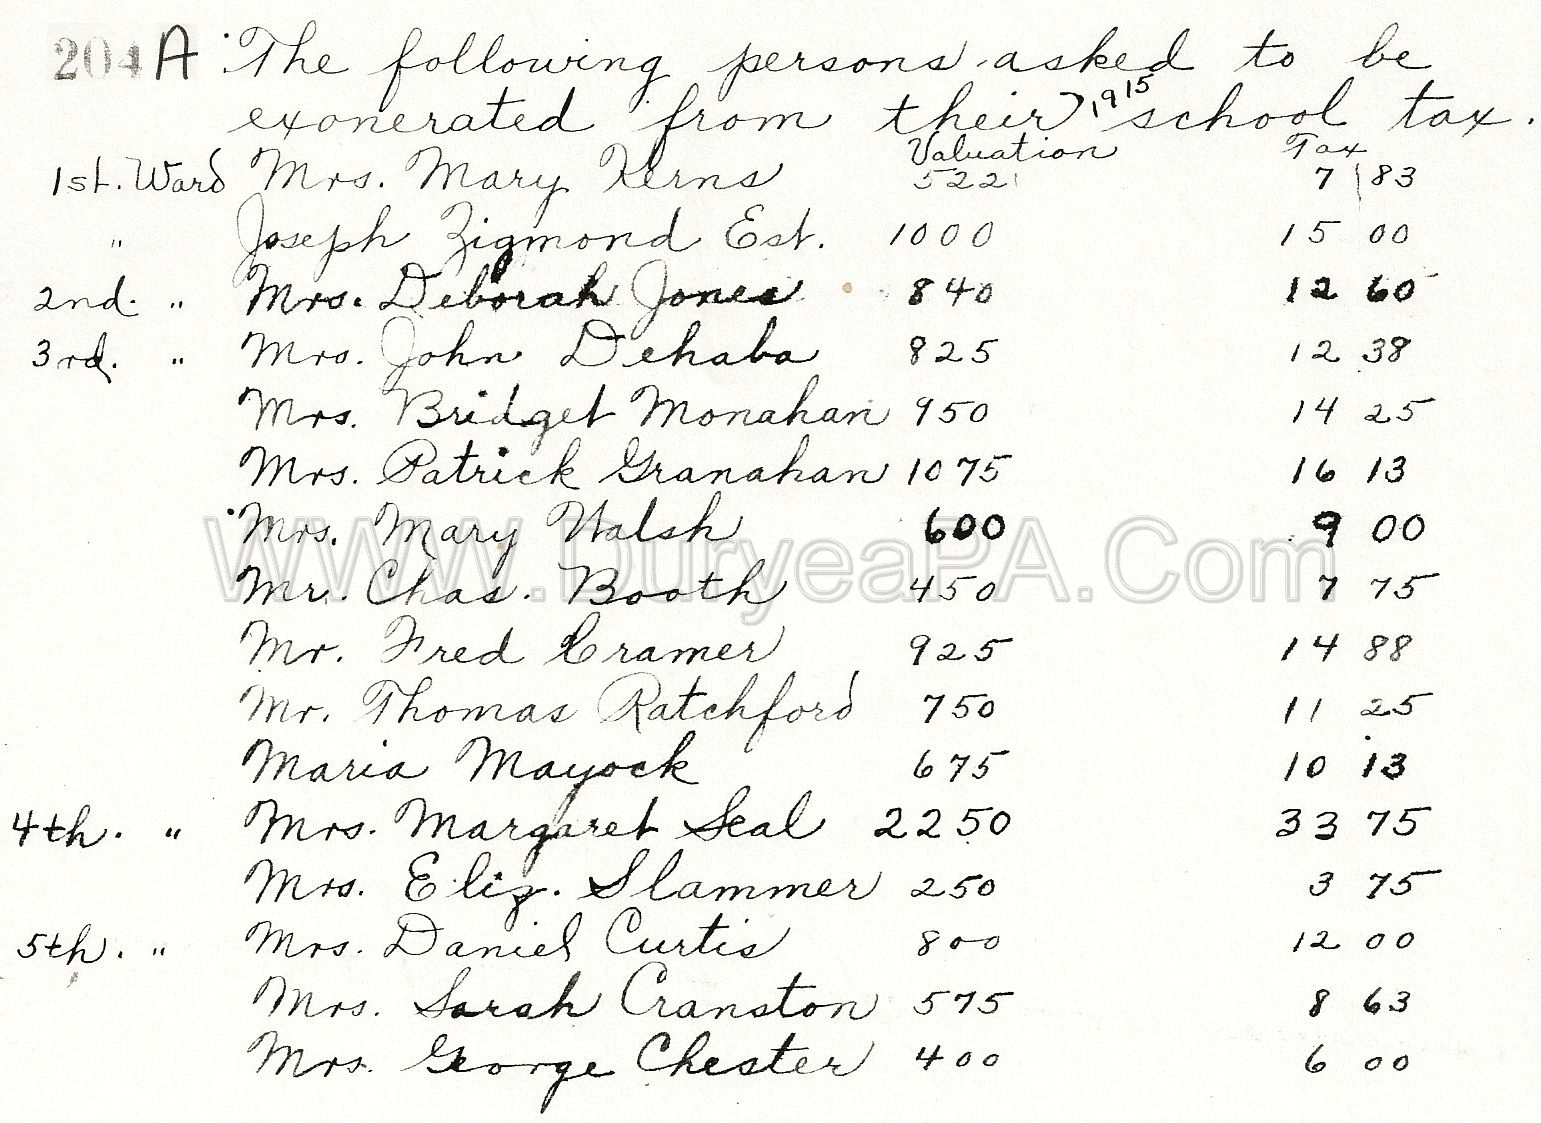 204 A The following persons asked to be
exonerated from their 1915 school tax.
Valuation Tax
1st. Ward Mrs. Mary Kerns 522 7 83
" Joseph Zigmond Est. 1000 15 00
2nd. " Mrs. Deborah Jones 840 12 60
3rd. " Mrs. John Dehaba 825 12 38
Mrs. Bridget Monahan 950 14 25
Mrs. Patrick Granahan 1075 16 13
Mrs. Mary Walsh 600 9 00
WWW.DuryeaPA.Com
Mr. Chas. Booth 450 7 75
Mr. Fred Cramer 925 14 88
Mr. Thomas Ratchford 750 11 25
Maria Mayock 675 10 13
4th. " Mrs. Margaret Seal 2250 33 75
Mrs. Eliz. Slammer 250 3 75
5th. " Mrs. Daniel Curtis 800 12 00
Mrs. Sarah Cranston 575 8 63
Mrs. George Chester 400 6 00